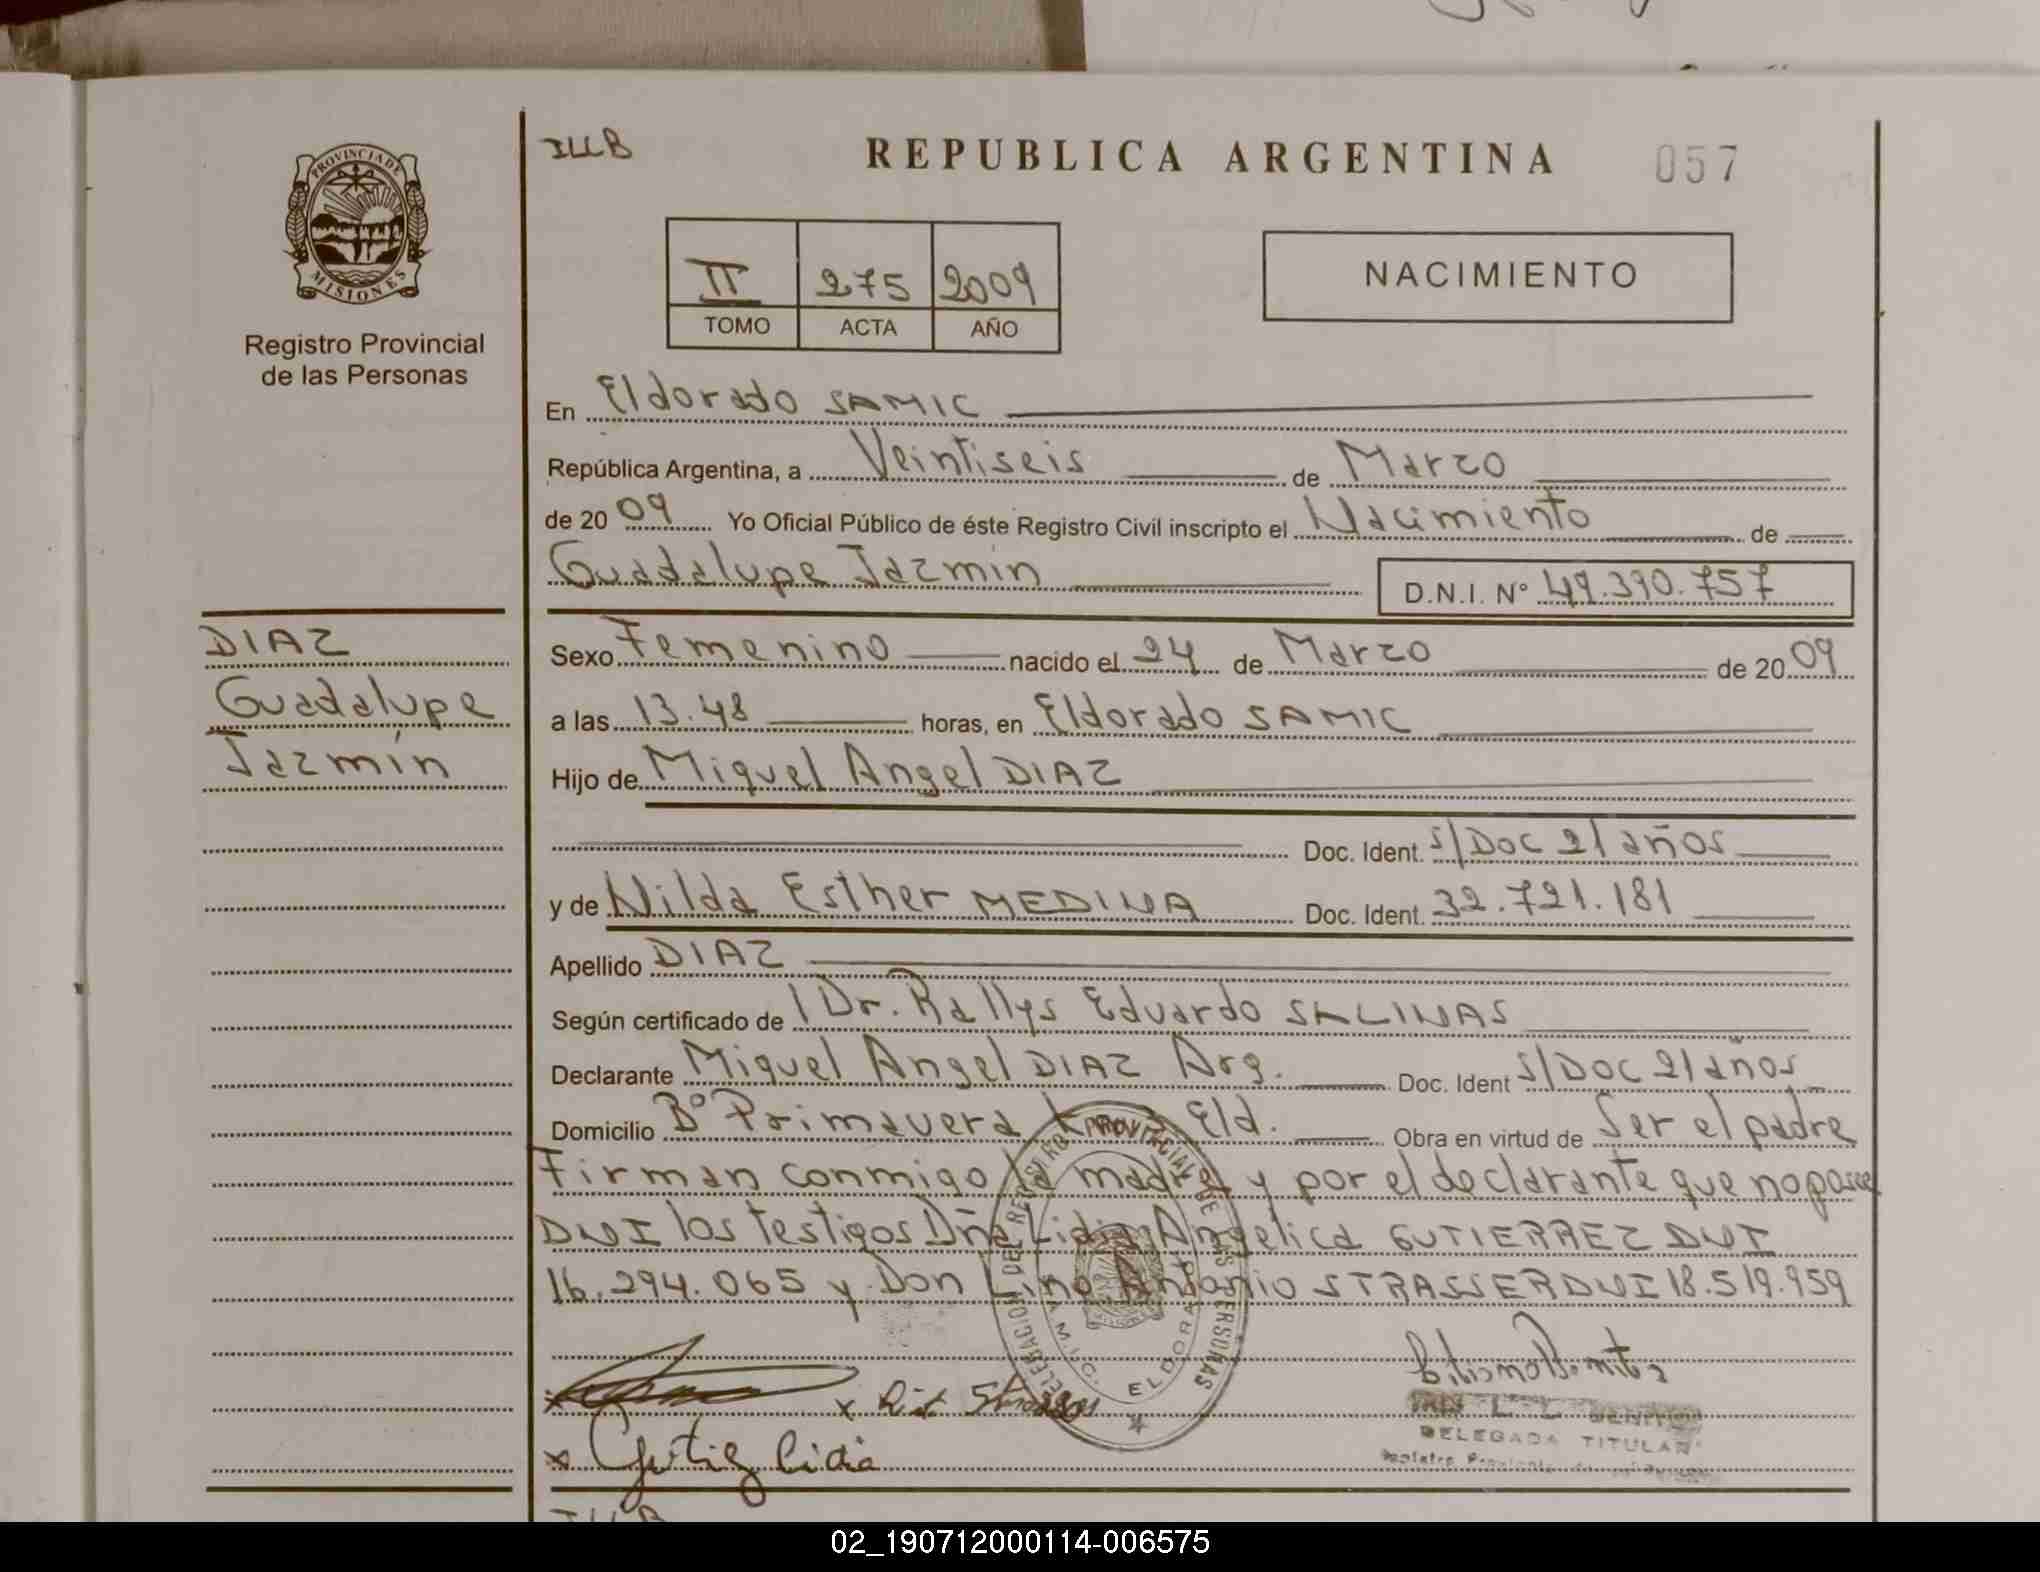 ILLB
REPUBLICA ARGENTINA
057
PROVINCIA DE MISIONES
Registro Provincial
de las Personas
II 275 2009
TOMO ACTA AÑO
NACIMIENTO
En Eldorado SAMIC
República Argentina, a Veintiseis de Marzo
de 2009 Yo Oficial Público de éste Registro Civil inscripto el Nacimiento de
Guadalupe Jazmin D.N.I. N° 49.390.757
DIAZ
Guadalupe
Jazmín
Sexo Femenino nacido el 24 de Marzo de 2009
a las 13.48 horas, en Eldorado SAMIC
Hijo de Miguel Angel DIAZ
Doc. Ident. s/Doc 21 años
y de Nilda Esther MEDINA Doc. Ident. 32.721.181
Apellido DIAZ
Según certificado de Dr. Rallys Eduardo SALINAS
Declarante Miguel Angel DIAZ Arg. Doc. Ident s/Doc 21 años
Domicilio B° Primavera Eld. Obra en virtud de Ser el padre
Firman conmigo la madre y por el declarante que no posee
DNI los testigos Dña Lidia Angelica GUTIERREZ DNI
16.294.065 y Don Lino Antonio STRASSER DNI 18.519.959
DELEGACION DEL REGISTRO PROVINCIAL DE LAS PERSONAS
ELDORADO
x
x Strasser
x Gutiez Lidia
BENITEZ
DELEGADA TITULAR
ILLB
02_190712000114-006575